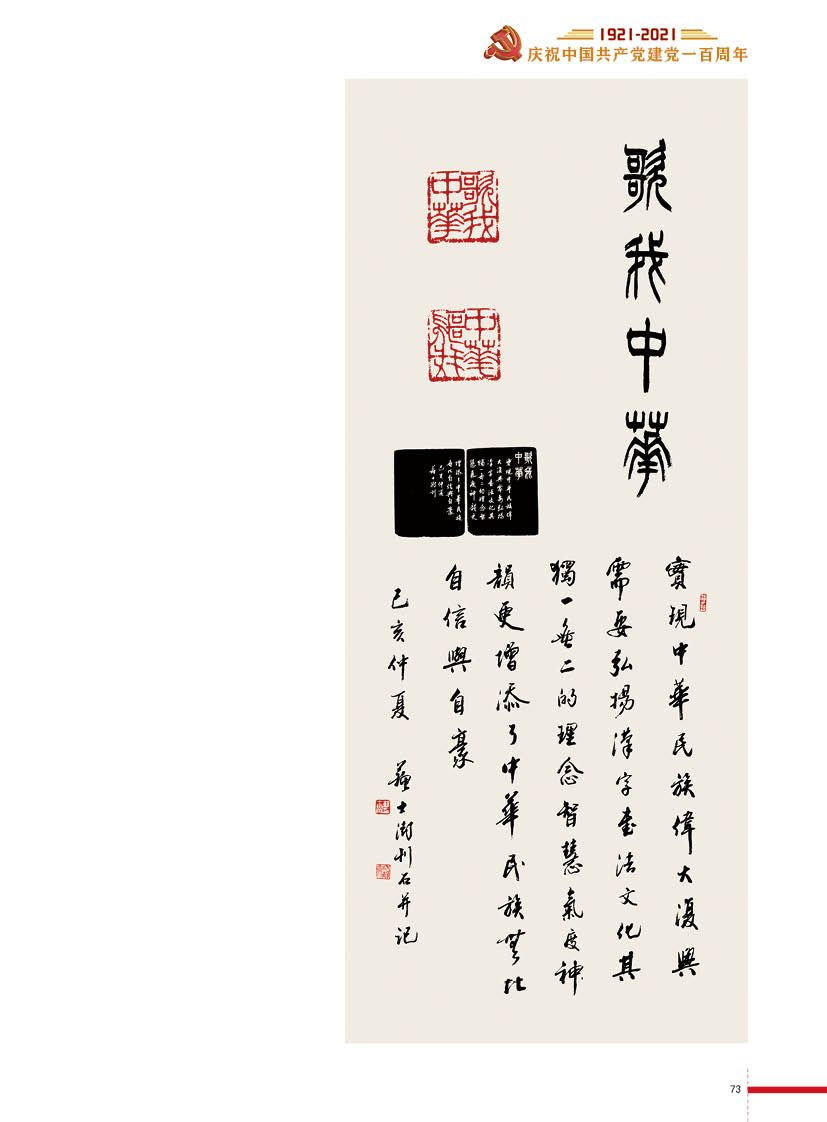 1921-2021
庆祝中国共产党建党一百周年
歌我中華
歌我
中華
歌我
中華
實現中華民族偉大復興
需要弘揚漢字書法文化其
獨一無二的理念智慧氣度神
韻更增添了中華民族無比
自信與自豪
己亥仲夏 蘇士澍刊石并記
73